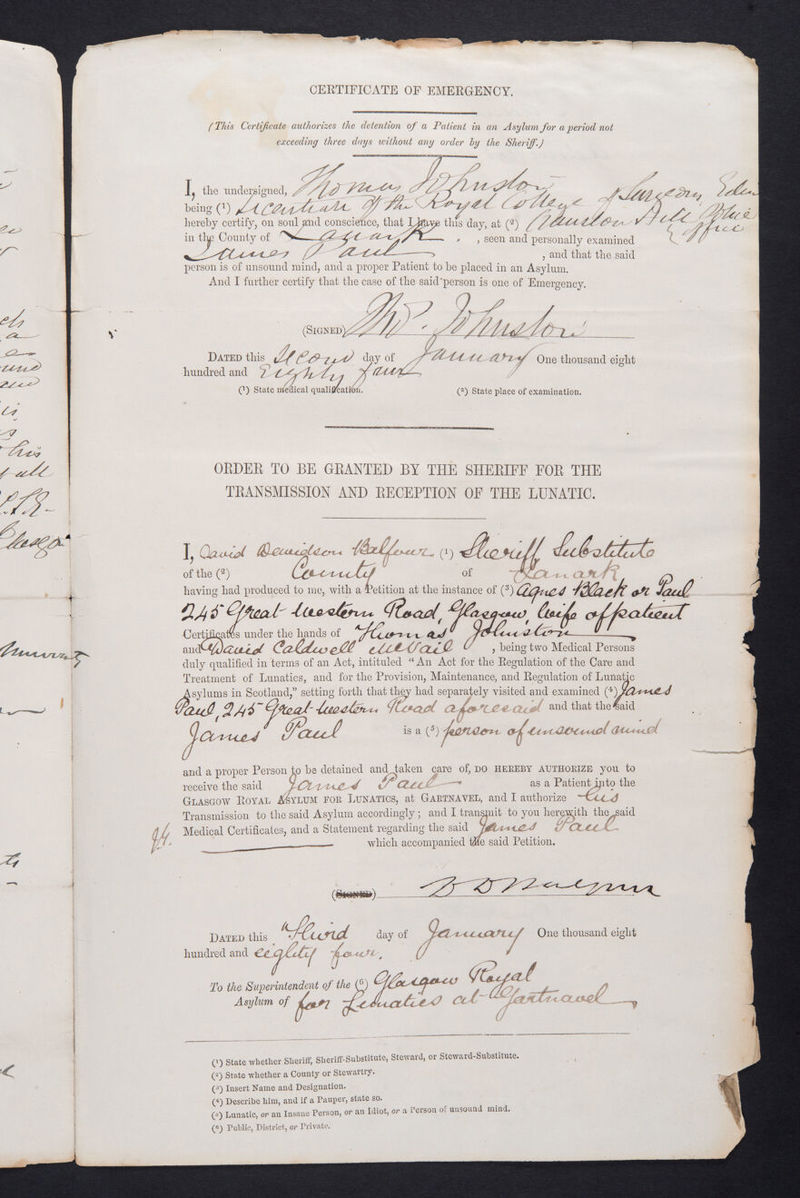 CERTIFICATE OF EMERGENCY.
(This Certificate authorizes the detention of a Patient in an Asylum for a period not
exceeding three days without any order by the Sheriff.)
I, the undersigned, Thomas Johnston
being (1) Licentiate of the Royal College of Surgeons, Edin
hereby certify, on soul and conscience, that I have this day, at (2) Police Office
in the County of Lanark , seen and personally examined
James Paul , and that the said
person is of unsound mind, and a proper Patient to be placed in an Asylum.
And I further certify that the case of the said person is one of Emergency.
(SIGNED) Tho. Johnston
DATED this Second day of January One thousand eight
hundred and Eighty four
(1) State medical qualification. (2) State place of examination.
ORDER TO BE GRANTED BY THE SHERIFF FOR THE
TRANSMISSION AND RECEPTION OF THE LUNATIC.
I, David Davidson Balfour (1) Sheriff Substitute
of the (2) County of Lanark
having had produced to me, with a Petition at the instance of (3) Agnes Black or Paul
245 Great Western Road, Glasgow, Wife of patient
Certificates under the hands of Thomas Johnston
and David Caldwell McVail , being two Medical Persons
duly qualified in terms of an Act, intituled "An Act for the Regulation of the Care and
Treatment of Lunatics, and for the Provision, Maintenance, and Regulation of Lunatic
Asylums in Scotland," setting forth that they had separately visited and examined (4) James
Paul, 245 Great Western Road aforesaid and that the said
James Paul is a (5) person of unsound mind
and a proper Person to be detained and taken care of, DO HEREBY AUTHORIZE you to
receive the said James Paul as a Patient into the
GLASGOW ROYAL ASYLUM FOR LUNATICS, at GARTNAVEL, and I authorize his
Transmission to the said Asylum accordingly; and I transmit to you herewith the said
Medical Certificates, and a Statement regarding the said James Paul
which accompanied the said Petition.
(SIGNED) D D Balfour
DATED this Third day of January One thousand eight
hundred and eighty four.
To the Superintendent of the (6) Glasgow Royal
Asylum of for Lunatics at Gartnavel
(1) State whether Sheriff, Sheriff-Substitute, Steward, or Steward-Substitute.
(2) State whether a County or Stewartry.
(3) Insert Name and Designation.
(4) Describe him, and if a Pauper, state so.
(5) Lunatic, or an Insane Person, or an Idiot, or a Person of unsound mind.
(6) Public, District, or Private.